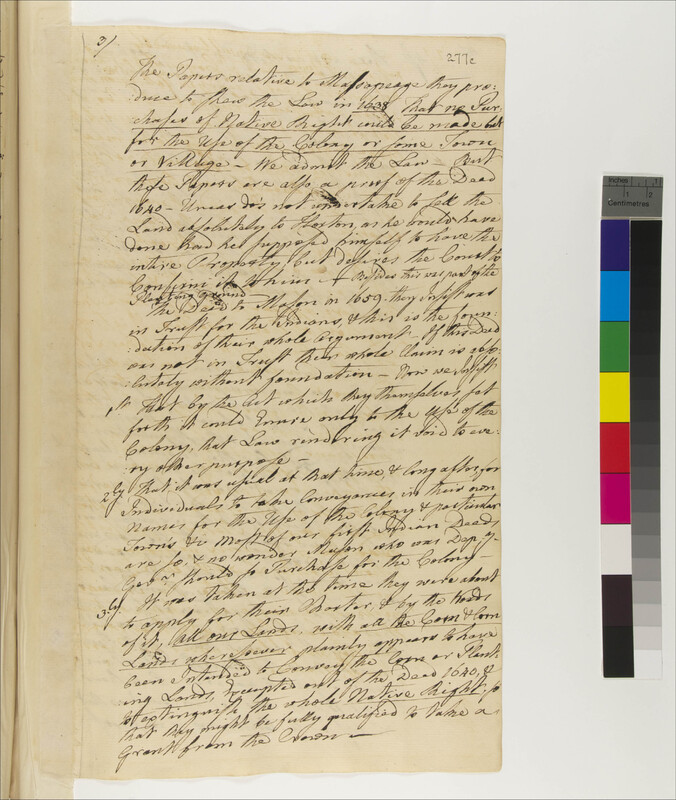 3/.
277c
The Papers relative to Massapeage they pro:
duce to shew the Law in 1638 that no Pur:
chases of Native Right could be made but
for the Use of the Colony or some Town
or Village – We admit the Law – But
these Papers are also a proof of the Deed
1640 – Uncas does not undertake to sell the
Land absolutely to Hoston, as he would have
done had he supposed himself to have the
intire Property but desires the Court to
Confirm it to him – + Besides this was part of the
Planting ground
The Deed to Mason in 1659. they insist was
in Trust for the Indians, & this is the foun:
:dation of their whole Argument. If this Deed
was not in Trust their whole Claim is abso:
:lutely without foundation – Now we insist
1st That by the Act which they themselves set
forth it could Enure only to the Use of the
Colony, that Law rendering it void to eve:
:ry other purpose –
2ly That it was usual at that time, & long after, for
Individuals to take Conveyances in their own
Names for the Use of the Colony & particular
Towns &c Most of our first Indian Deeds
are so. & no wonder Mason who was Depy
Govr should so Purchase for the Colony –
3ly It was taken at the time they were about
to apply for their Charter & by the Words
of it, All our Lands, with all the Corn & Corn
Lands wheresoever plainly appears to have
been intended to Convey the Corn or Plant
:ing Lands, excepted out of the Deed 1640, &
to extinguish the whole Native Right, so
that they might be fully qualified to take a
Grant from the Crown –
Inches
1
2
Centimetres